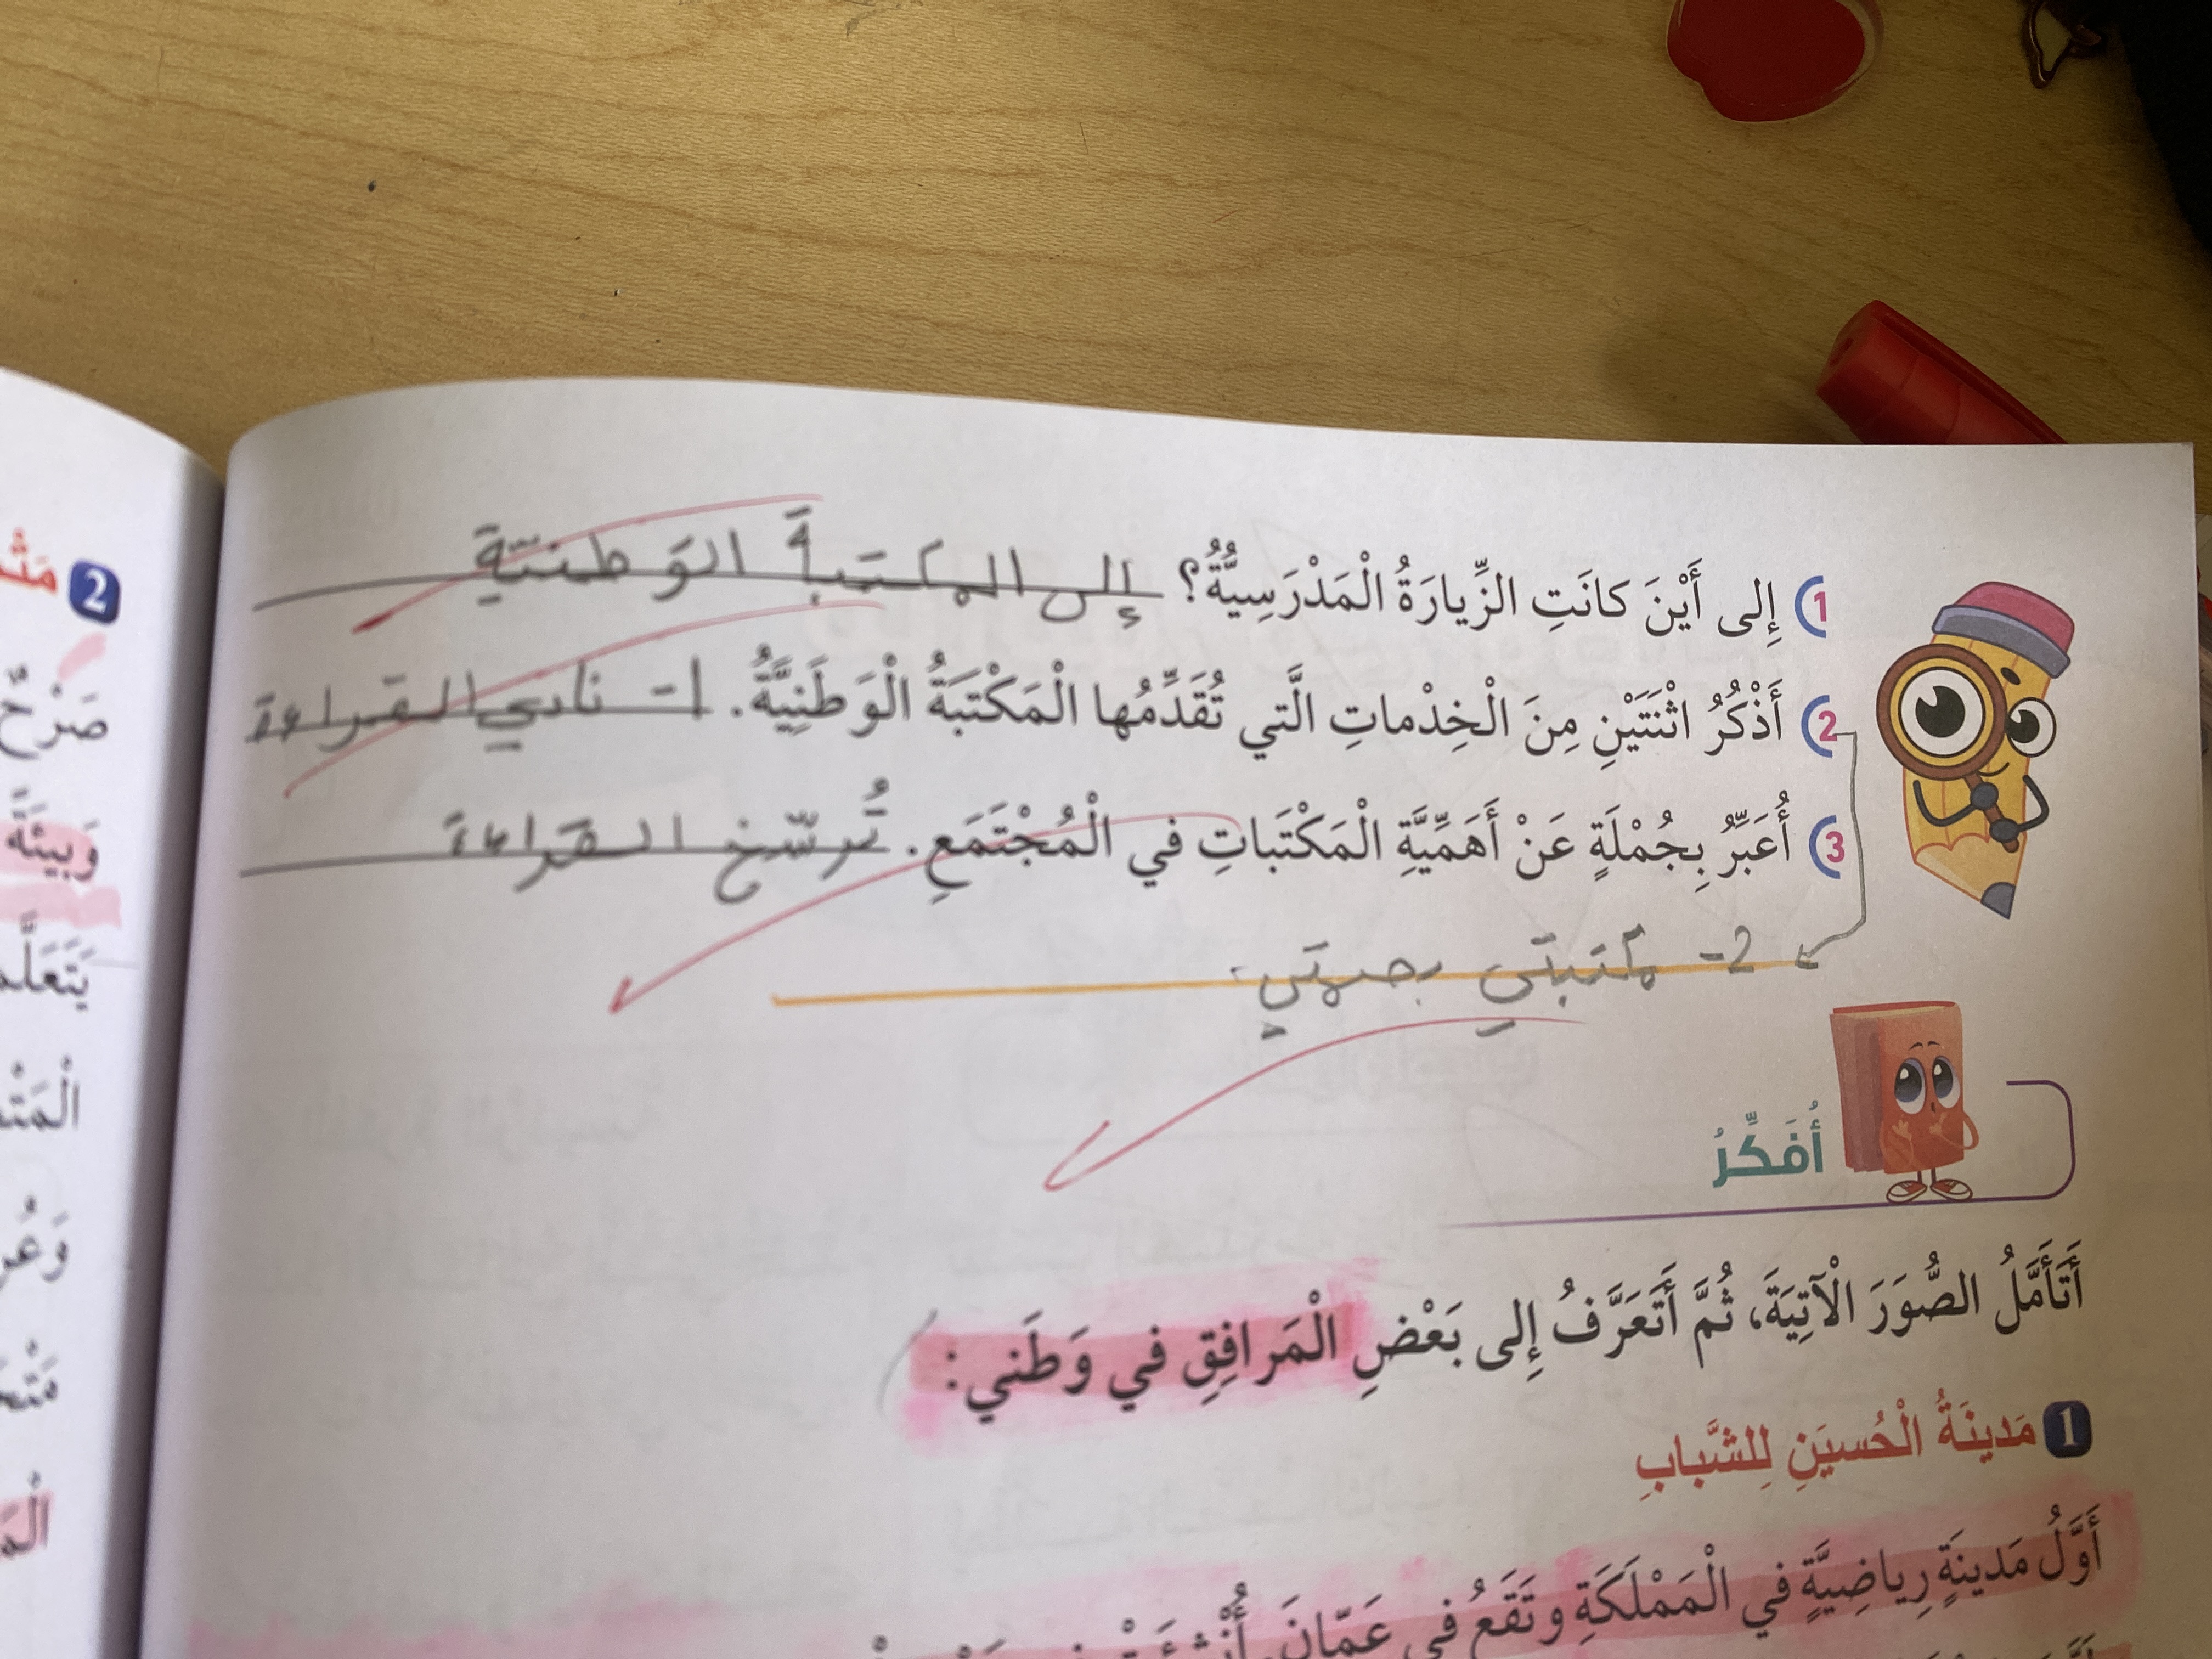 1 إِلى أَيْنَ كانَتِ الزِّيارَةُ الْمَدْرَسِيَّةُ؟ إلى المكتبة الوَطنيّة
2 أَذْكُرُ اثْنَتَيْنِ مِنَ الْخِدْماتِ الَّتي تُقَدِّمُها الْمَكْتَبَةُ الْوَطَنِيَّةُ. 1- نادي القراءة
3 أُعَبِّرُ بِجُمْلَةٍ عَنْ أَهَمِّيَّةِ الْمَكْتَباتِ في الْمُجْتَمَعِ. تُرسّخ القراءة
2- مكتبتي بجهتي.
أُفَكِّرُ
أَتَأَمَّلُ الصُّوَرَ الْآتِيَةَ، ثُمَّ أَتَعَرَّفُ إِلى بَعْضِ الْمَرافِقِ في وَطَني:
1 مَدينَةُ الْحُسيَنِ لِلشَّبابِ
أَوَّلُ مَدينَةٍ رِياضِيَّةٍ في الْمَمْلَكَةِ وتَقَعُ في عَمّانَ
2
صَرْحٌ
وَبيئَةً
وَعُر